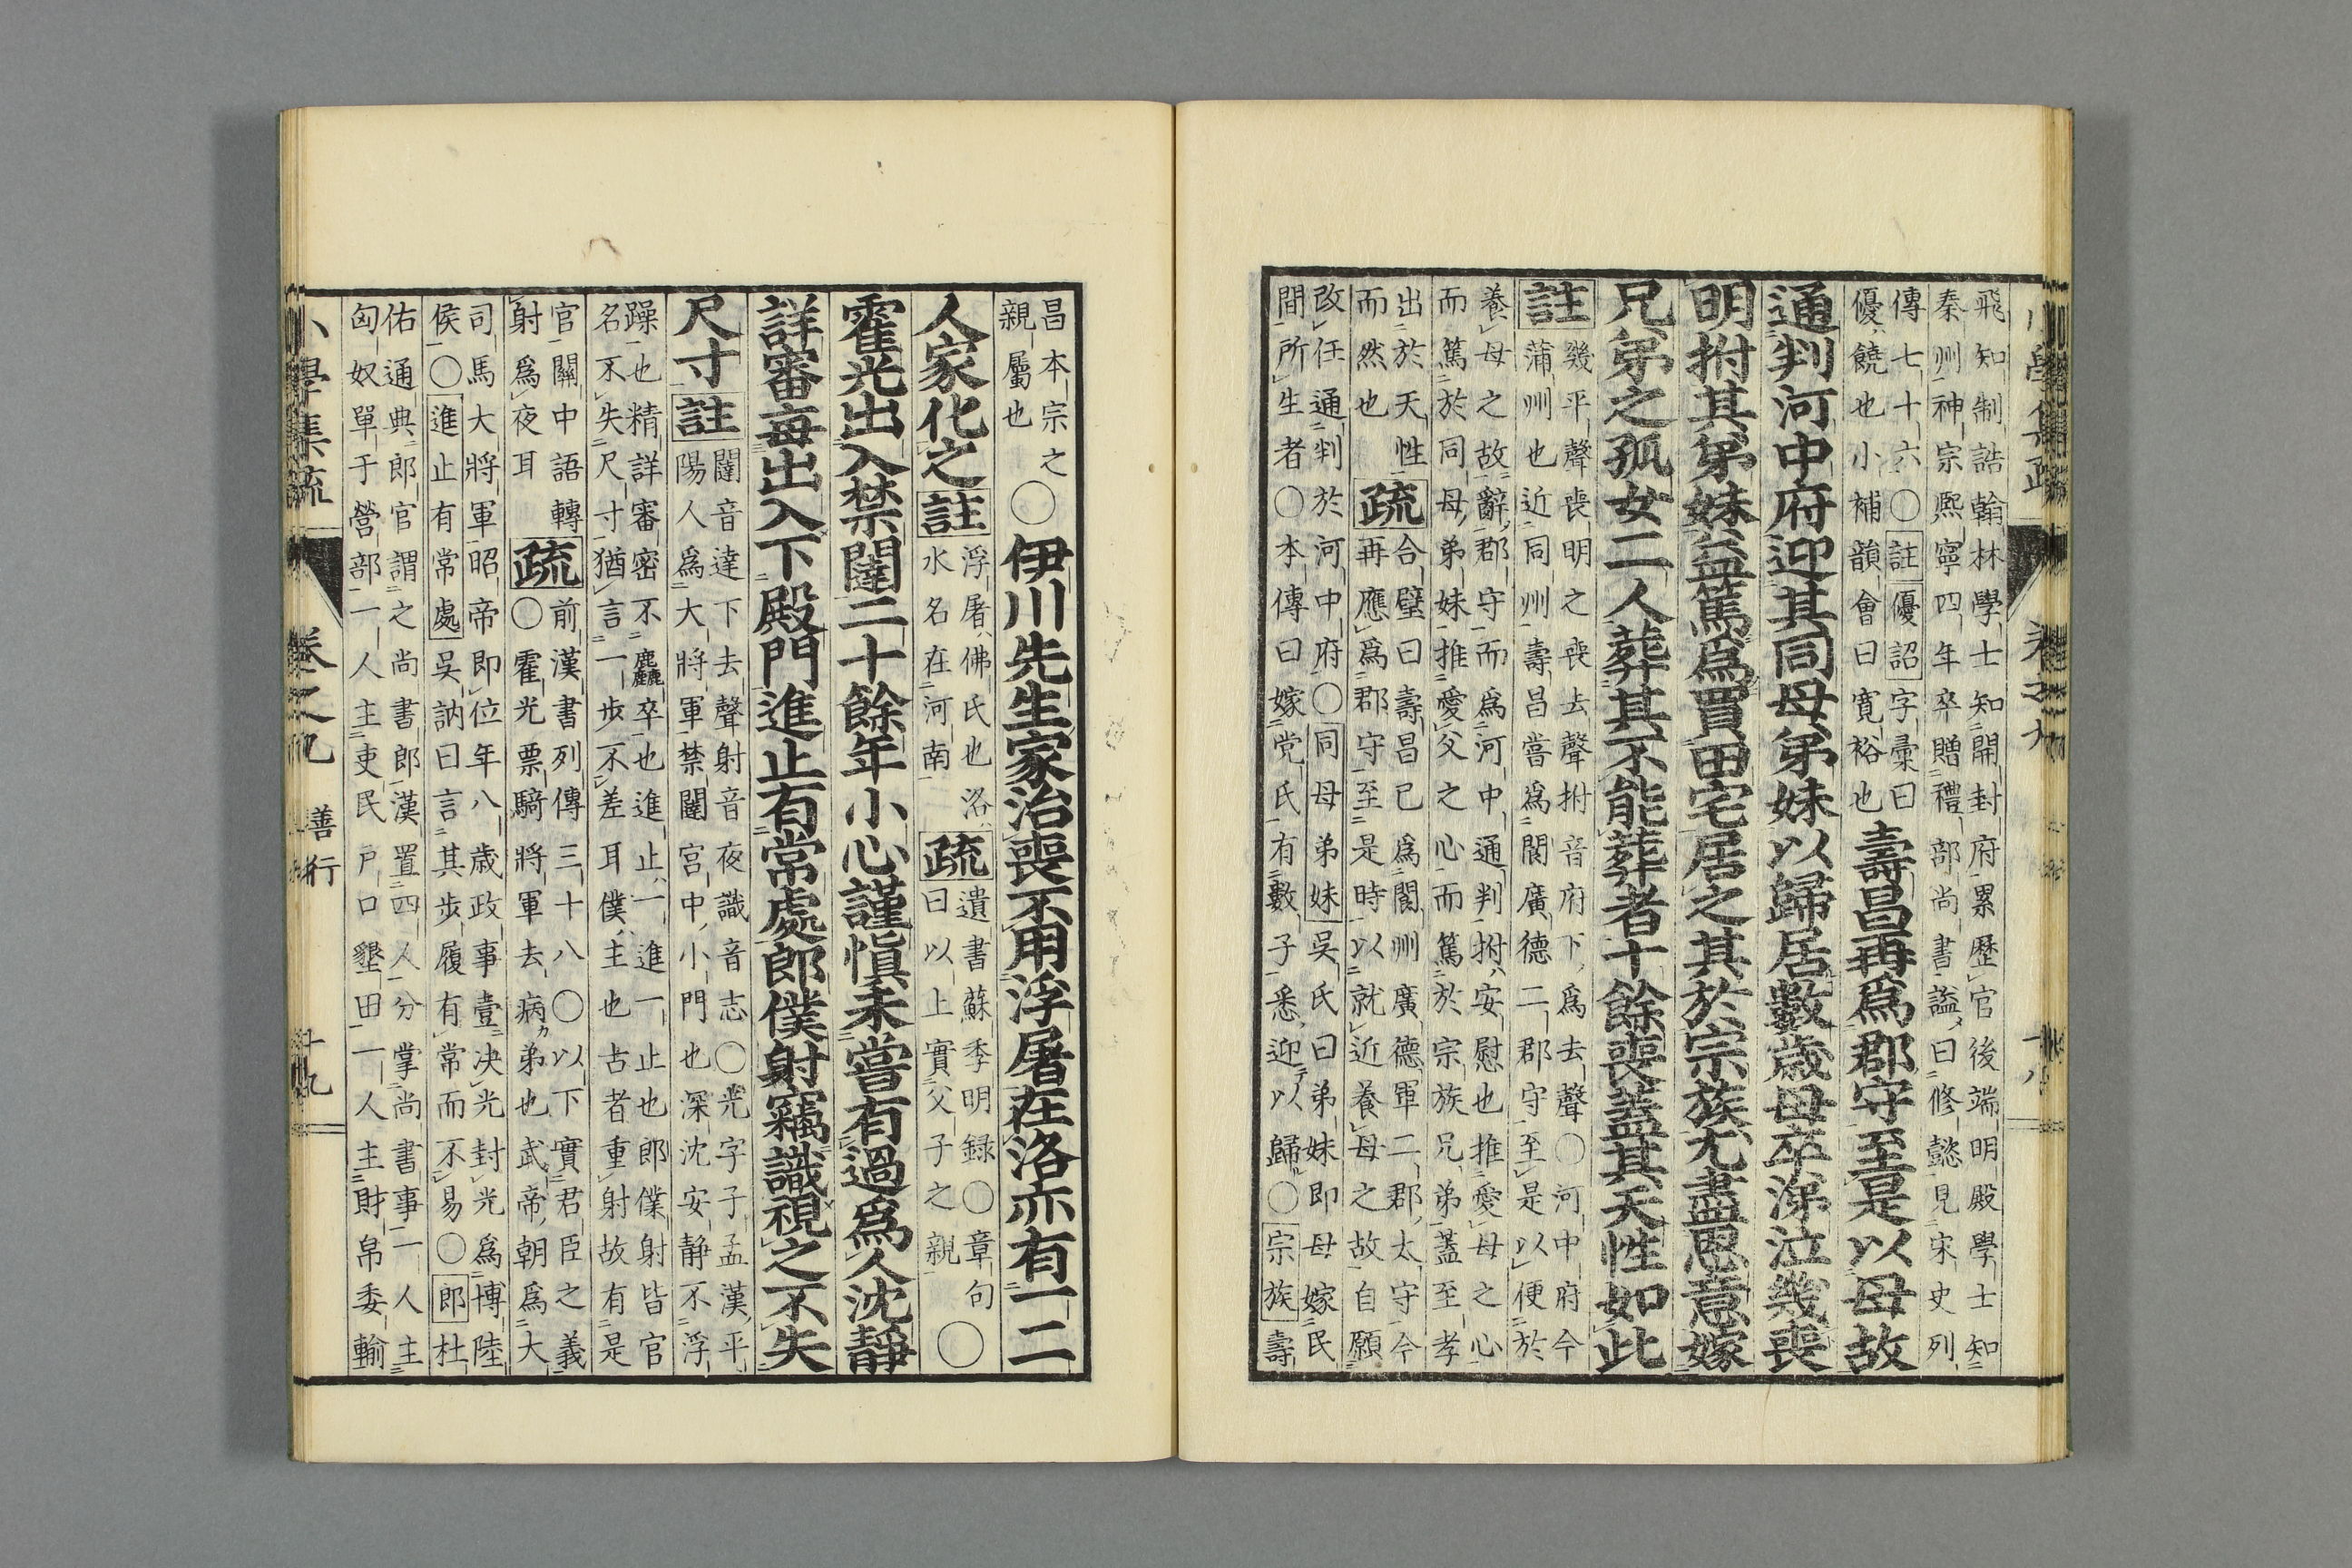 飛知制誥翰林學士知開封府累歷官後端明殿學士知
秦州神宗熙寧四年卒贈禮部尚書謚曰修懿見宋史列
傳七十六〇註優詔字彙曰
優饒也小補韻會曰寛裕也
壽昌再爲郡守至是以母故
通判河中府迎其同母弟妹以歸居數歲母卒涕泣幾喪
明拊其弟妹益篤爲買田宅居之其於宗族尤盡恩意嫁
兄弟之孤女二人葬其不能葬者十餘喪蓋其天性如此
註
幾平聲喪明之喪去聲拊音府下爲去聲〇河中府今
蒲州也近同州壽昌嘗爲閬廣德二郡守至是以便於
養母之故辭郡守而爲河中通判拊安慰也推愛母之心
而篤於同母弟妹推愛父之心而篤於宗族兄弟蓋至孝
出於天性
而然也
疏
合璧曰壽昌已爲閬州廣德軍二郡太守今
再應爲郡守至是時以就近養母之故自願
改任通判於河中府〇同母弟妹吳氏曰弟妹即母嫁民
間所生者〇本傳曰嫁党氏有數子悉迎以歸〇宗族壽
小學集疏
卷之九
十八
昌本宗之
親屬也
〇伊川先生家治喪不用浮屠在洛亦有一二
人家化之註
浮屠佛氏也洛
水名在河南
疏
遺書蘇季明録〇章句
曰以上實父子之親
〇
霍光出入禁闥二十餘年小心謹愼未嘗有過爲人沈靜
詳審每出入下殿門進止有常處郎僕射竊識視之不失
尺寸註
闥音達下去聲射音夜識音志〇光字子孟漢平
陽人爲大將軍禁闥宫中小門也深沈安静不浮
躁也精詳審密不麤卒也進止一進一止也郎僕射皆官
名不失尺寸猶言一步不差耳僕主也古者重射故有是
官關中語轉
射爲夜耳
疏
前漢書列傳三十八〇以下實君臣之義
〇霍光票騎將軍去病弟也武帝朝爲大
司馬大將軍昭帝即位年八歲政事壹決光封光爲博陸
侯〇進止有常處吳訥曰言其步履有常而不易〇郎杜
佑通典郎官謂之尚書郎漢置四人分掌尚書事一人主
匈奴單于營部一人主吏民戸口墾田一人主財帛委輸
小學集疏
卷之九
善行
十九